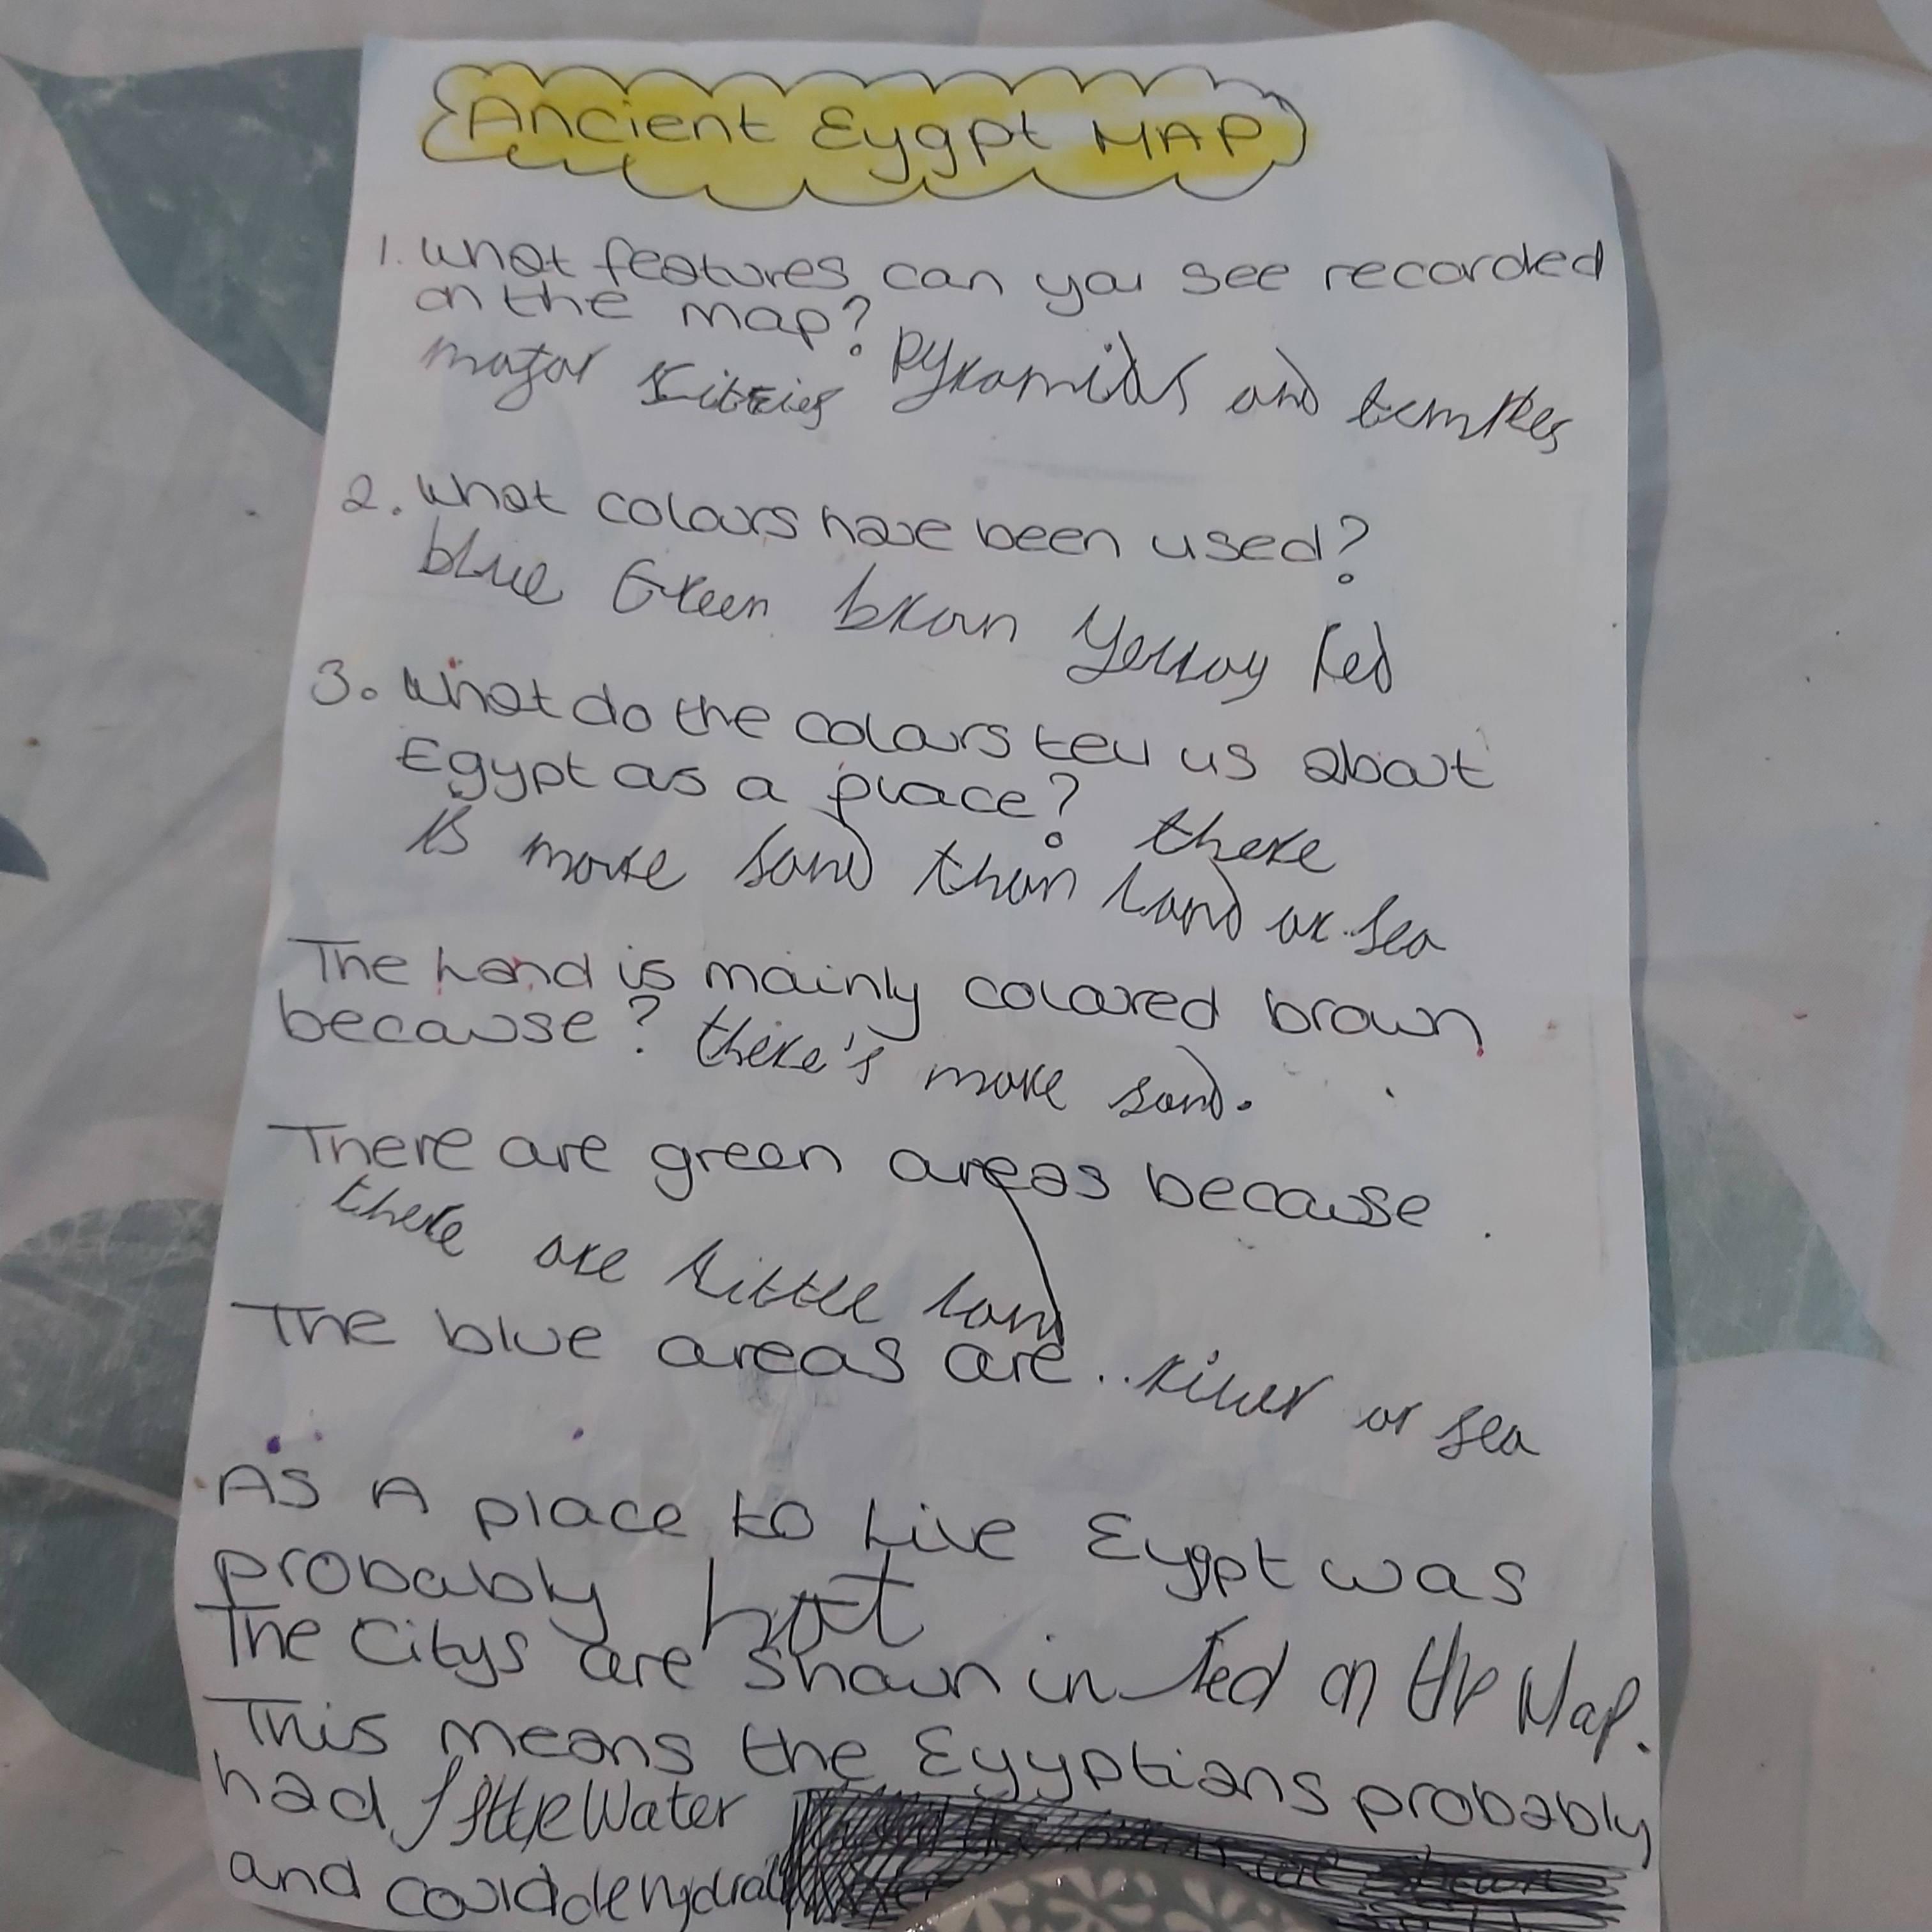 Ancient Eygpt MAP
1. What features can you see recorded
on the map? Pyramids and temples
major Citties
2. What colours have been used?
blue Green brown Yellow Red
3. What do the colours tell us about
Egypt as a place? there
is more sand than land or sea
The Land is mainly colored brown
because? there's more sand.
There are green areas because .
there are little land
The blue areas are.. river or sea
As A place to Live Eygpt was
probably hot
The Citys are shown in red on the Map.
This means the Egyptians probably
had little Water
and could dehydrat